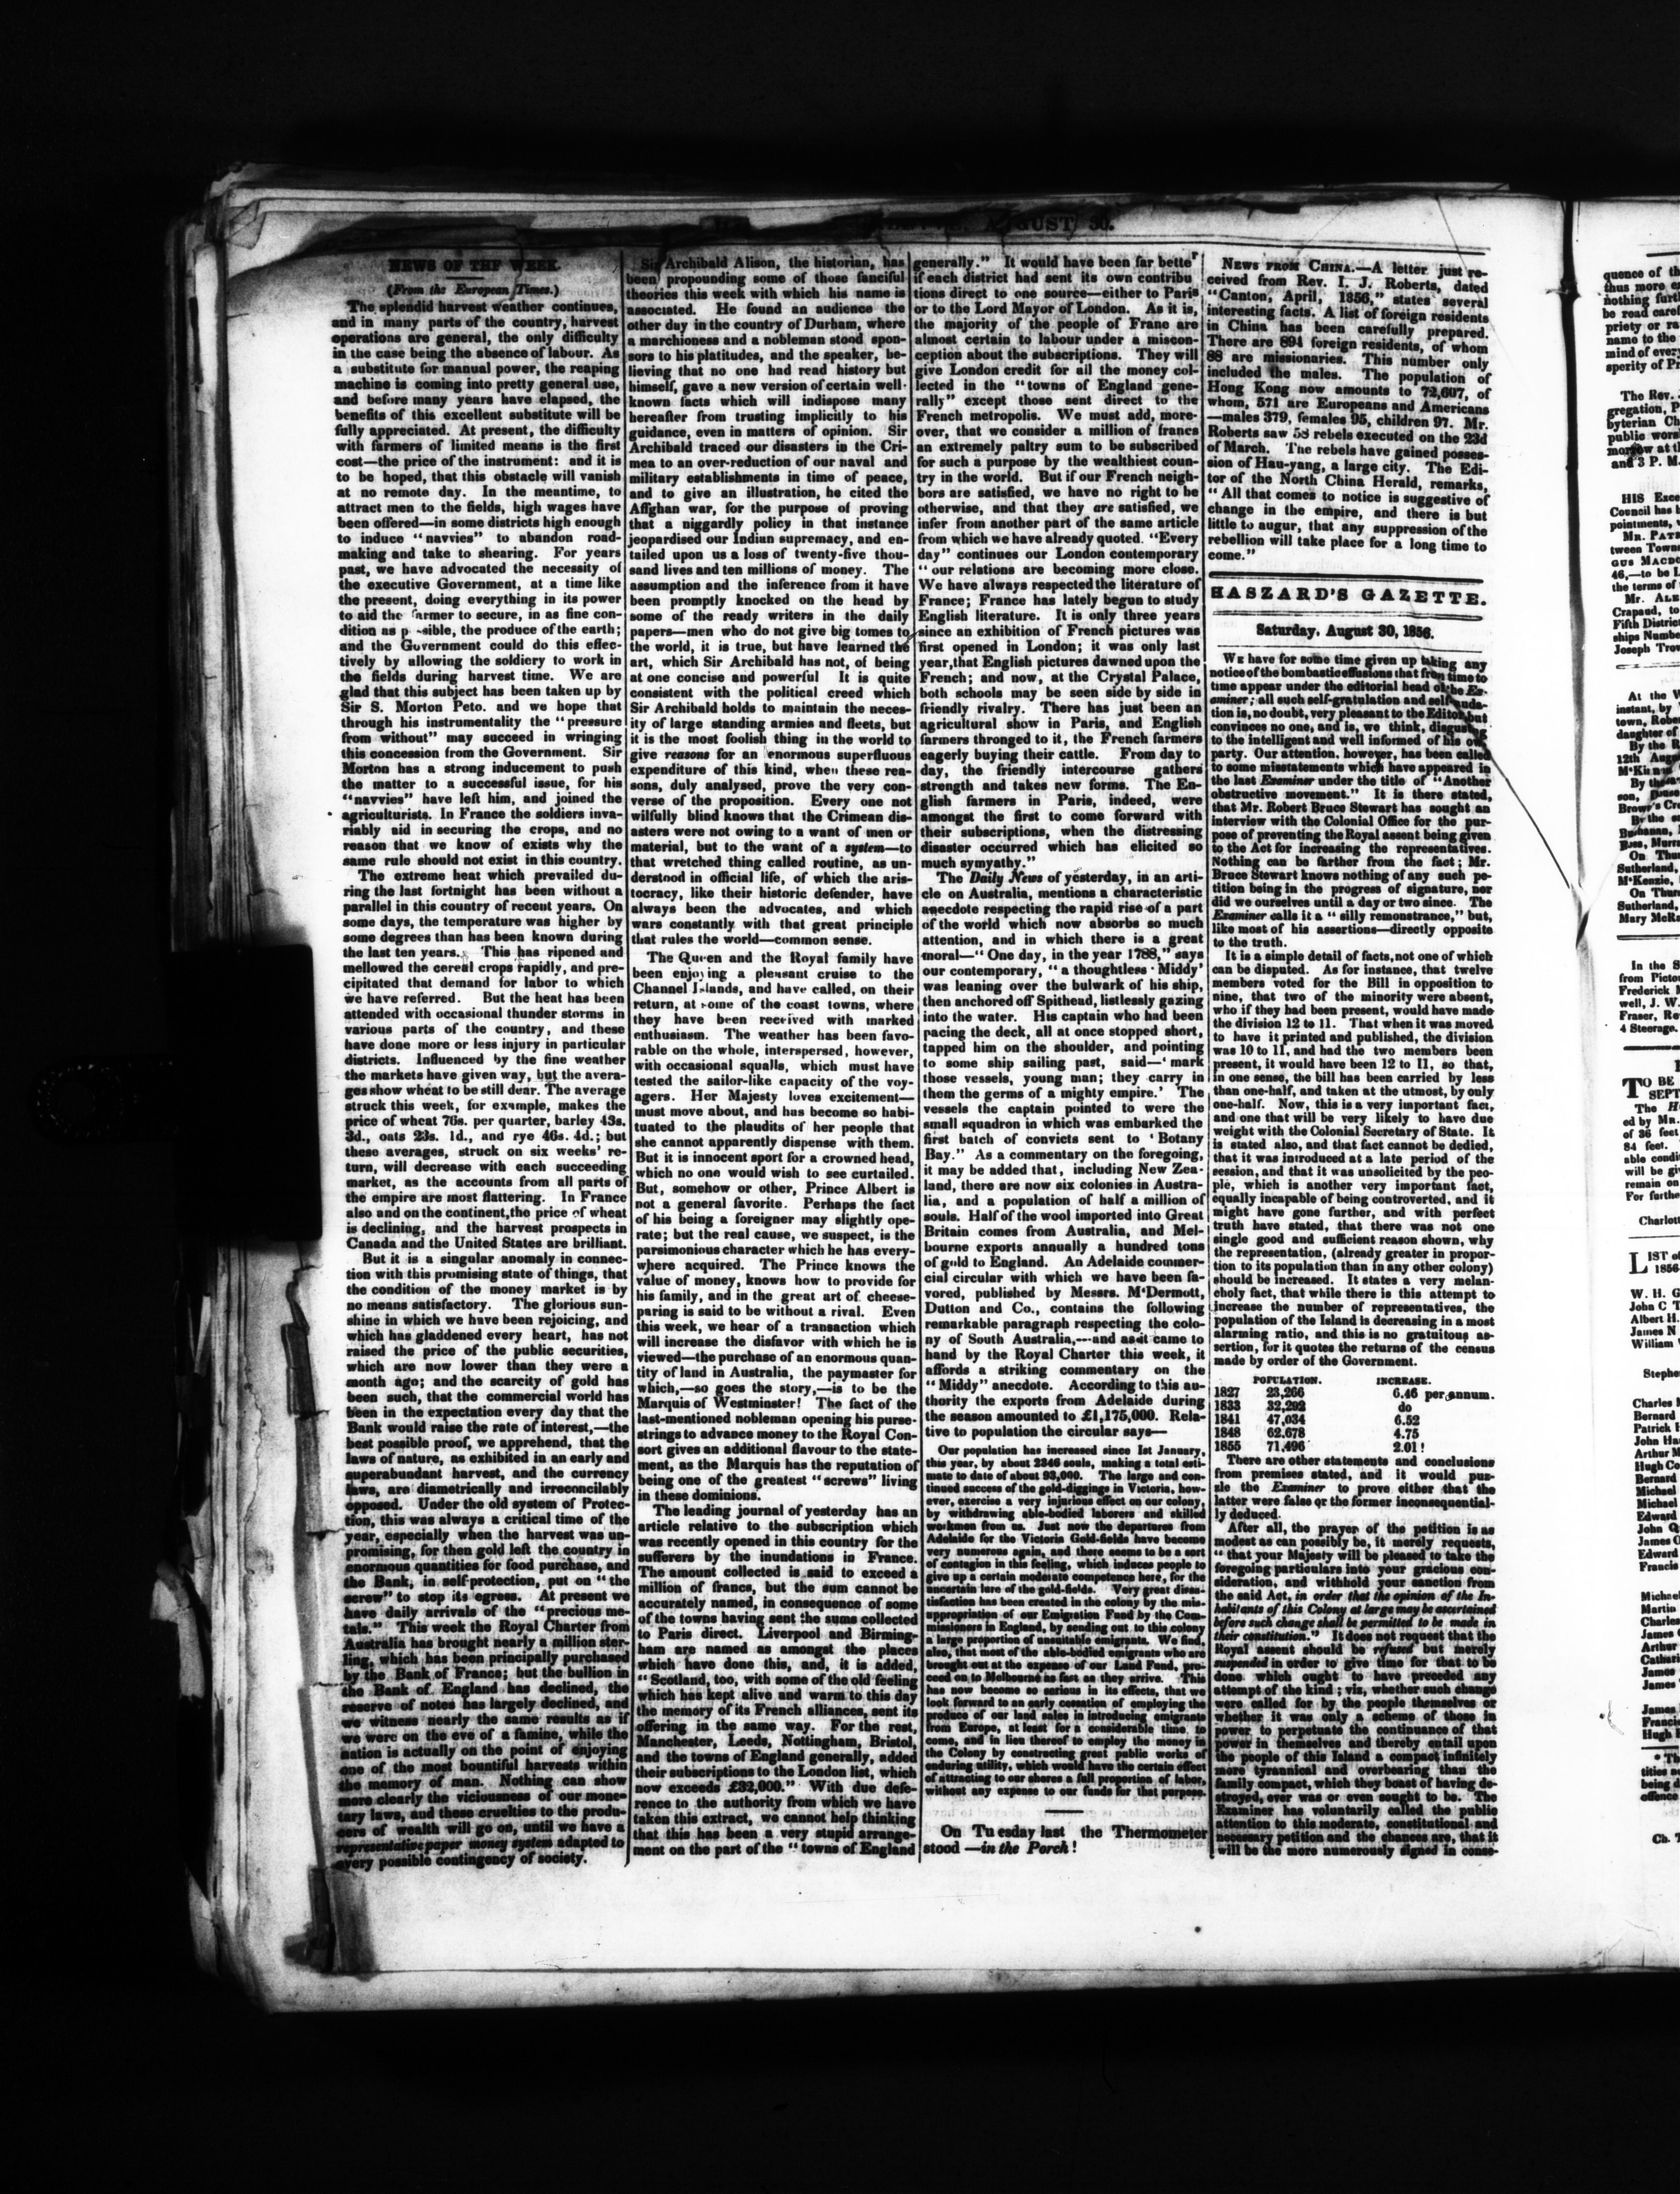 AUGUST 30.
NEWS OF THE WEEK.
(From the European Times.)
The splendid harvest weather continues,
and in many parts of the country, harvest
operations are general, the only difficulty
in the case being the absence of labour. As
a substitute for manual power, the reaping
machine is coming into pretty general use,
and before many years have elapsed, the
benefits of this excellent substitute will be
fully appreciated. At present, the difficulty
with farmers of limited means is the first
cost—the price of the instrument: and it is
to be hoped, that this obstacle will vanish
at no remote day. In the meantime, to
attract men to the fields, high wages have
been offered—in some districts high enough
to induce "navvies" to abandon road-
making and take to shearing. For years
past, we have advocated the necessity of
the executive Government, at a time like
the present, doing everything in its power
to aid the farmer to secure, in as fine con-
dition as p sible, the produce of the earth;
and the Government could do this effec-
tively by allowing the soldiery to work in
the fields during harvest time. We are
glad that this subject has been taken up by
Sir S. Morton Peto. and we hope that
through his instrumentality the "pressure
from without" may succeed in wringing
this concession from the Government. Sir
Morton has a strong inducement to push
the matter to a successful issue, for his
"navvies" have left him, and joined the
agriculturists. In France the soldiers inva-
riably aid in securing the crops, and no
reason that we know of exists why the
same rule should not exist in this country.
The extreme heat which prevailed du-
ring the last fortnight has been without a
parallel in this country of recent years. On
some days, the temperature was higher by
some degrees than has been known during
the last ten years. This has ripened and
mellowed the cereal crops rapidly, and pre-
cipitated that demand for labor to which
we have referred. But the heat has been
attended with occasional thunder storms in
various parts of the country, and these
have done more or less injury in particular
districts. Influenced by the fine weather
the markets have given way, but the avera-
ges show wheat to be still dear. The average
struck this week, for example, makes the
price of wheat 76s. per quarter, barley 43s.
3d., oats 23s. 1d., and rye 46s. 4d.; but
these averages, struck on six weeks' re-
turn, will decrease with each succeeding
market, as the accounts from all parts of
the empire are most flattering. In France
also and on the continent,the price of wheat
is declining, and the harvest prospects in
Canada and the United States are brilliant.
But it is a singular anomaly in connec-
tion with this promising state of things, that
the condition of the money market is by
no means satisfactory. The glorious sun-
shine in which we have been rejoicing, and
which has gladdened every heart, has not
raised the price of the public securities,
which are now lower than they were a
month ago; and the scarcity of gold has
been such, that the commercial world has
been in the expectation every day that the
Bank would raise the rate of interest,—the
best possible proof, we apprehend, that the
laws of nature, as exhibited in an early and
superabundant harvest, and the currency
laws, are diametrically and irreconcilably
opposed. Under the old system of Protec-
tion, this was always a critical time of the
year, especially when the harvest was un-
promising, for then gold left the country in
enormous quantities for food purchase, and
the Bank, in self-protection, put on "the
screw" to stop its egress. At present we
have daily arrivals of the "precious me-
tals." This week the Royal Charter from
Australia has brought nearly a million ster-
ling, which has been principally purchased
by the Bank of France; but the bullion in
the Bank of England has declined, the
reserve of notes has largely declined, and
we witness nearly the same results as if
we were on the eve of a famine, while the
nation is actually on the point of enjoying
one of the most bountiful harvests within
the memory of man. Nothing can show
more clearly the viciousness of our mone-
tary laws, and these cruelties to the produ-
cers of wealth will go on, until we have a
representative paper money system adapted to
every possible contingency of society.
Sir Archibald Alison, the historian, has
been propounding some of those fanciful
theories this week with which his name is
associated. He found an audience the
other day in the country of Durham, where
a marchioness and a nobleman stood spon-
sors to his platitudes, and the speaker, be-
lieving that no one had read history but
himself, gave a new version of certain well-
known facts which will indispose many
hereafter from trusting implicitly to his
guidance, even in matters of opinion. Sir
Archibald traced our disasters in the Cri-
mea to an over-reduction of our naval and
military establishments in time of peace,
and to give an illustration, he cited the
Affghan war, for the purpose of proving
that a niggardly policy in that instance
jeopardised our Indian supremacy, and en-
tailed upon us a loss of twenty-five thou-
sand lives and ten millions of money. The
assumption and the inference from it have
been promptly knocked on the head by
some of the ready writers in the daily
papers—men who do not give big tomes to
the world, it is true, but have learned the
art, which Sir Archibald has not, of being
at one concise and powerful It is quite
consistent with the political creed which
Sir Archibald holds to maintain the neces-
ity of large standing armies and fleets, but
it is the most foolish thing in the world to
give reasons for an enormous superfluous
expenditure of this kind, when these rea-
sons, duly analysed, prove the very con-
verse of the proposition. Every one not
wilfully blind knows that the Crimean dis-
asters were not owing to a want of men or
material, but to the want of a system—to
that wretched thing called routine, as un-
derstood in official life, of which the aris-
tocracy, like their historic defender, have
always been the advocates, and which
wars constantly with that great principle
that rules the world—common sense.
The Queen and the Royal family have
been enjoying a pleasant cruise to the
Channel Islands, and have called, on their
return, at some of the coast towns, where
they have been received with marked
enthusiasm. The weather has been favo-
rable on the whole, interspersed, however,
with occasional squalls, which must have
tested the sailor-like capacity of the voy-
agers. Her Majesty loves excitement—
must move about, and has become so habi-
tuated to the plaudits of her people that
she cannot apparently dispense with them.
But it is innocent sport for a crowned head,
which no one would wish to see curtailed.
But, somehow or other, Prince Albert is
not a general favorite. Perhaps the fact
of his being a foreigner may slightly ope-
rate; but the real cause, we suspect, is the
parsimonious character which he has every-
where acquired. The Prince knows the
value of money, knows how to provide for
his family, and in the great art of cheese-
paring is said to be without a rival. Even
this week, we hear of a transaction which
will increase the disfavor with which he is
viewed—the purchase of an enormous quan-
tity of land in Australia, the paymaster for
which,—so goes the story,—is to be the
Marquis of Westminster! The fact of the
last-mentioned nobleman opening his purse-
strings to advance money to the Royal Con-
sort gives an additional flavour to the state-
ment, as the Marquis has the reputation of
being one of the greatest "screws" living
in these dominions.
The leading journal of yesterday has an
article relative to the subscription which
was recently opened in this country for the
sufferers by the inundations in France.
The amount collected is said to exceed a
million of francs, but the sum cannot be
accurately named, in consequence of some
of the towns having sent the sums collected
to Paris direct. Liverpool and Birming-
ham are named as amongst the places
which have done this, and, it is added,
"Scotland, too, with some of the old feeling
which has kept alive and warm to this day
the memory of its French alliances, sent its
offering in the same way. For the rest,
Manchester, Leeds, Nottingham, Bristol,
and the towns of England generally, added
their subscriptions to the London list, which
now exceeds £32,000." With due defe-
rence to the authority from which we have
taken this extract, we cannot help thinking
that this has been a very stupid arrange-
ment on the part of the "towns of England
generally." It would have been far better
if each district had sent its own contribu
tions direct to one source—either to Paris
or to the Lord Mayor of London. As it is,
the majority of the people of Franc are
almost certain to labour under a miscon-
ception about the subscriptions. They will
give London credit for all the money col-
lected in the "towns of England gene-
rally" except those sent direct to the
French metropolis. We must add, more-
over, that we consider a million of francs
an extremely paltry sum to be subscribed
for such a purpose by the wealthiest coun-
try in the world. But if our French neigh-
bors are satisfied, we have no right to be
otherwise, and that they are satisfied, we
infer from another part of the same article
from which we have already quoted. "Every
day" continues our London contemporary
"our relations are becoming more close.
We have always respected the literature of
France; France has lately begun to study
English literature. It is only three years
since an exhibition of French pictures was
first opened in London; it was only last
year,that English pictures dawned upon the
French; and now, at the Crystal Palace,
both schools may be seen side by side in
friendly rivalry. There has just been an
agricultural show in Paris, and English
farmers thronged to it, the French farmers
eagerly buying their cattle. From day to
day, the friendly intercourse gathers
strength and takes new forms. The En-
glish farmers in Paris, indeed, were
amongst the first to come forward with
their subscriptions, when the distressing
disaster occurred which has elicited so
much symyathy."
The Daily News of yesterday, in an arti-
cle on Australia, mentions a characteristic
anecdote respecting the rapid rise of a part
of the world which now absorbs so much
attention, and in which there is a great
moral—"One day, in the year 1788," says
our contemporary, "a thoughtless 'Middy'
was leaning over the bulwark of his ship,
then anchored off Spithead, listlessly gazing
into the water. His captain who had been
pacing the deck, all at once stopped short,
tapped him on the shoulder, and pointing
to some ship sailing past, said—'mark
those vessels, young man; they carry in
them the germs of a mighty empire.' The
vessels the captain pointed to were the
small squadron in which was embarked the
first batch of convicts sent to 'Botany
Bay." As a commentary on the foregoing,
it may be added that, including New Zea-
land, there are now six colonies in Austra-
lia, and a population of half a million of
souls. Half of the wool imported into Great
Britain comes from Australia, and Mel-
bourne exports annually a hundred tons
of gold to England. An Adelaide commer-
cial circular with which we have been fa-
vored, published by Messrs. M'Dermott,
Dutton and Co., contains the following
remarkable paragraph respecting the colo-
ny of South Australia,—and as it came to
hand by the Royal Charter this week, it
affords a striking commentary on the
"Middy" anecdote. According to this au-
thority the exports from Adelaide during
the season amounted to £1,175,000. Rela-
tive to population the circular says—
Our population has increased since 1st January,
this year, by about 2346 souls, making a total esti-
mate to date of about 93,000. The large and con-
tinued success of the gold-diggings in Victoria, how-
ever, exercise a very injurious effect on our colony,
by withdrawing able-bodied laborers and skilled
workmen from us. Just now the departures from
Adelaide for the Victoria Gold-fields have become
very numerous again, and there seems to be a sort
of contagion in this feeling, which induces people to
give up a certain moderate competence here, for the
uncertain lure of the gold-fields. Very great dissa-
tisfaction has been created in the colony by the mis-
appropriation of our Emigration Fund by the Com-
missioners in England, by sending out to this colony
a large proportion of unsuitable emigrants. We find,
also, that most of the able-bodied emigrants who are
brought out at the expense of our Land Fund, pro-
ceed on to Melbourne as fast as they arrive. This
has now become so serious in its effects, that we
look forward to an early cessation of employing the
produce of our land sales in introducing emigrants
from Europe, at least for a considerable time to
come, and in lieu thereof to employ the money in
the Colony by constructing great public works of
enduring utility, which would have the certain effect
of attracting to our shores a full proportion of labor,
without any expense to our funds for that purpose.
On Tuesday last the Thermometer
stood —in the Porch!
NEWS FROM CHINA.—A letter just re-
ceived from Rev. I. J. Roberts, dated
"Canton, April, 1856," states several
interesting facts. A list of foreign residents
in China has been carefully prepared.
There are 894 foreign residents, of whom
88 are missionaries. This number only
included the males. The population of
Hong Kong now amounts to 72,607, of
whom, 571 are Europeans and Americans
—males 379, females 95, children 97. Mr.
Roberts saw 58 rebels executed on the 23d
of March. The rebels have gained posses-
sion of Hau-yang, a large city. The Edi-
tor of the North China Herald, remarks,
"All that comes to notice is suggestive of
change in the empire, and there is but
little to augur, that any suppression of the
rebellion will take place for a long time to
come."
HASZARD'S GAZETTE.
Saturday, August 30, 1856.
WE have for some time given up taking any
notice of the bombastic effusions that from time to
time appear under the editorial head of the Ex-
aminer; all such self-gratulation and self-lauda-
tion is, no doubt, very pleasant to the Editor but
convinces no one, and is, we think, disgusting
to the intelligent and well informed of his own
party. Our attention, however, has been called
to some misstatements which have appeared in
the last Examiner under the title of "Another
obstructive movement." It is there stated,
that Mr. Robert Bruce Stewart has sought an
interview with the Colonial Office for the pur-
pose of preventing the Royal assent being given
to the Act for increasing the representatives.
Nothing can be farther from the fact; Mr.
Bruce Stewart knows nothing of any such pe-
tition being in the progress of signature, nor
did we ourselves until a day or two since. The
Examiner calls it a "silly remonstrance," but,
like most of his assertions—directly opposite
to the truth.
It is a simple detail of facts,not one of which
can be disputed. As for instance, that twelve
members voted for the Bill in opposition to
nine, that two of the minority were absent,
who if they had been present, would have made
the division 12 to 11. That when it was moved
to have it printed and published, the division
was 10 to 11, and had the two members been
present, it would have been 12 to 11, so that,
in one sense, the bill has been carried by less
than one-half, and taken at the utmost, by only
one-half. Now, this is a very important fact,
and one that will be very likely to have due
weight with the Colonial Secretary of State. It
is stated also, and that fact cannot be dedied,
that it was introduced at a late period of the
session, and that it was unsolicited by the peo-
ple, which is another very important fact,
equally incapable of being controverted, and it
might have gone further, and with perfect
truth have stated, that there was not one
single good and sufficient reason shown, why
the representation, (already greater in propor-
tion to its population than in any other colony)
should be increased. It states a very melan-
choly fact, that while there is this attempt to
increase the number of representatives, the
population of the Island is decreasing in a most
alarming ratio, and this is no gratuitous as-
sertion, for it quotes the returns of the census
made by order of the Government.
POPULATION. INCREASE.
1827 23,266 6.46 per annum.
1833 32,292 do
1841 47,034 6.52
1848 62.678 4.75
1855 71,496 2.01!
There are other statements and conclusions
from premises stated, and it would puz-
zle the Examiner to prove either that the
latter were false or the former inconsequential-
ly deduced.
After all, the prayer of the petition is as
modest as can possibly be, it merely requests,
"that your Majesty will be pleased to take the
foregoing particulars into your gracious con-
sideration, and withhold your sanction from
the said Act, in order that the opinion of the In-
habitants of this Colony at large may be ascertained
before such change shall be permitted to be made in
their constitution." It does not request that the
Royal assent should be refused but merely
suspended in order to give time for that to be
done which ought to have preceded any
attempt of the kind; vis, whether such change
were called for by the people themselves or
whether it was only a scheme of those in
power to perpetuate the continuance of that
power in themselves and thereby entail upon
the people of this Island a compact infinitely
more tyrannical and overbearing than the
family compact, which they boast of having de-
stroyed, ever was or even sought to be. The
Examiner has voluntarily called the public
attention to this moderate, constitutional and
necessary petition and the chances are, that it
will be the more numerously signed in conse-
quence of th
thus more
nothing furt
be read caref
priety or
name to the
mind of every
sperity of Pr
The Rev.
gregation, P
byterian Ch
public wors
morrow at th
and 3 P. M.
HIS Exce
Council has
pointments,
MR. PAT
tween Town
GUS MACDO
46,—to be
the terms of
Mr. ALE
Crapaud, to
Fifth Distric
ships Numbe
Joseph Trow
At the W
instant, by
town, Rober
daughter of
By the
12th Augu
By the
son,
Brown's Cre
By the
Buchanan,
Ross, Murr
On Thu
Sutherland,
M'Kenzie,
On Thur
Sutherland,
Mary McRa
In the S
from Picto
Frederick
well, J. W.
Fraser, Re
4 Steerage.
TO BE
SEPT
The H
ed by MR.
of 36 feet
84 feet.
able condi
will be giv
remain on
For furthe
Charlott
LIST of
1856
W. H. G
John C T
Albert H.
James N
William
Stephe
Charles
Bernard
Patrick
John Ha
Arthur M
Hugh Co
Bernard
Michael
Michael
Edward
John Q
James O
Edward
Francis
Michae
Martin
Charles
James
Arthur
Catheri
James
James
James
Franci
Hugh
* Th
tities
being d
offence
Ch. T